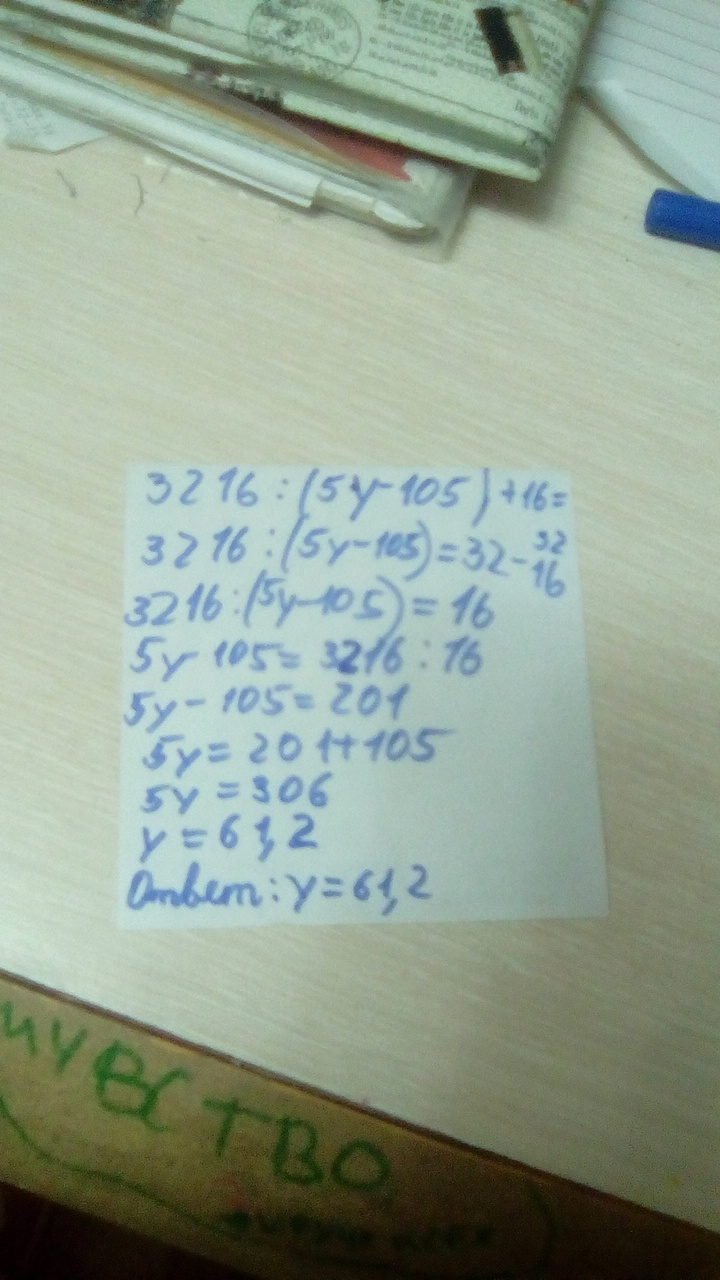 3216 : (5y-105) +16=
32
3216 : (5y-105) = 32-16
3216:(5y-105) = 16
5y 105= 3216 : 16
5y- 105= 201
5y= 201+105
5y = 306
y = 61,2
Ответ: y = 61,2
ВСТВО